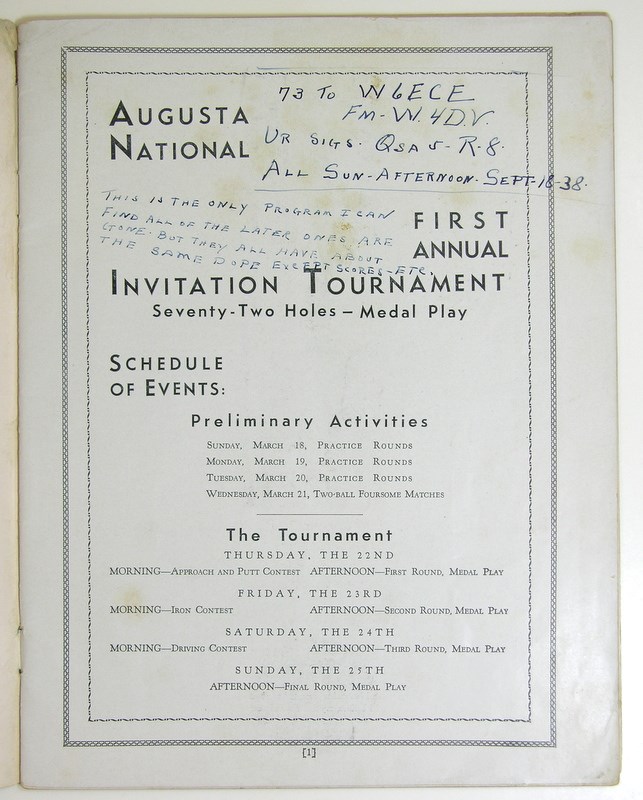 73 To W6ECE
FM-W.4D.V.
UR SIGS. QSA 5- R-8.
ALL SUN-AFTERNOON-SEPT-18-38.
AUGUSTA
NATIONAL
THIS IS THE ONLY PROGRAM I CAN
FIND ALL OF THE LATER ONES ARE
GONE. BUT THEY ALL HAVE ABOUT
THE SAME DOPE EXCEPT SCORES-ETC.
FIRST
ANNUAL
INVITATION TOURNAMENT
Seventy-Two Holes – Medal Play
SCHEDULE
OF EVENTS:
Preliminary Activities
SUNDAY, MARCH 18, PRACTICE ROUNDS
MONDAY, MARCH 19, PRACTICE ROUNDS
TUESDAY, MARCH 20, PRACTICE ROUNDS
WEDNESDAY, MARCH 21, TWO-BALL FOURSOME MATCHES
The Tournament
THURSDAY, THE 22ND
MORNING—APPROACH AND PUTT CONTEST AFTERNOON—FIRST ROUND, MEDAL PLAY
FRIDAY, THE 23RD
MORNING—IRON CONTEST AFTERNOON—SECOND ROUND, MEDAL PLAY
SATURDAY, THE 24TH
MORNING—DRIVING CONTEST AFTERNOON—THIRD ROUND, MEDAL PLAY
SUNDAY, THE 25TH
AFTERNOON—FINAL ROUND, MEDAL PLAY
[1]